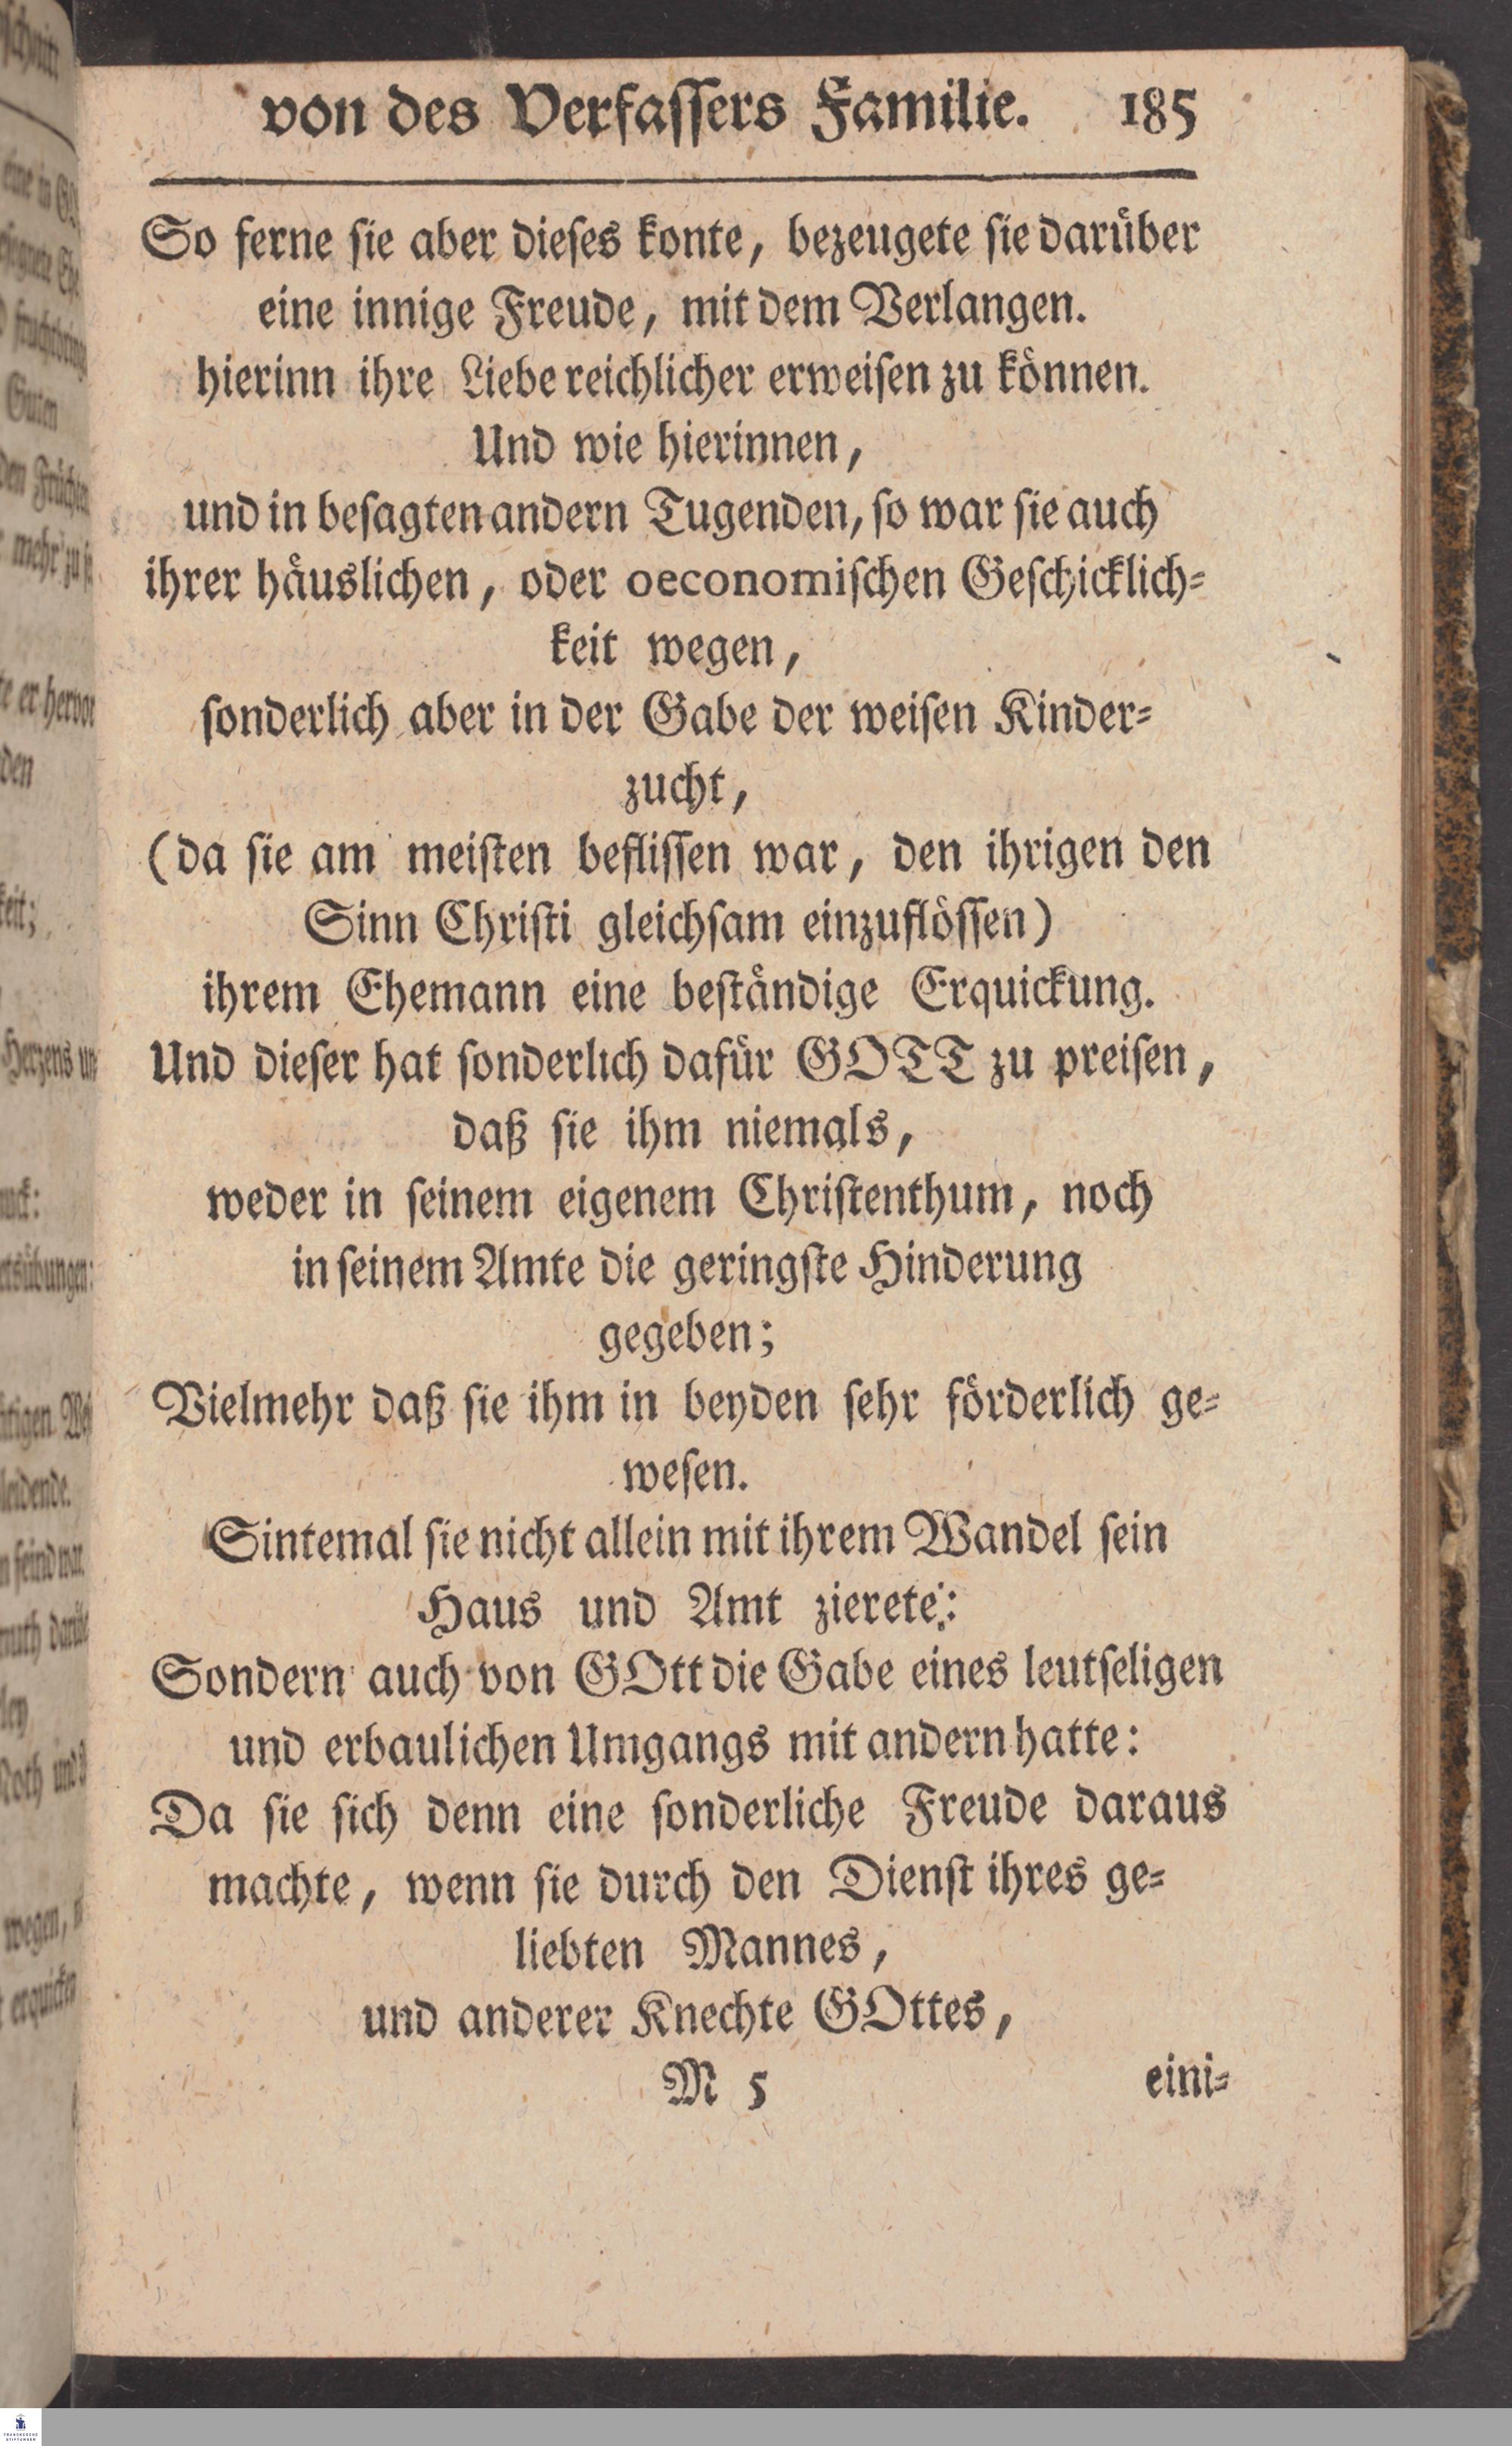 von des Verfassers Familie. 185
So ferne sie aber dieses konte, bezeugete sie darüber
eine innige Freude, mit dem Verlangen.
hierinn ihre Liebe reichlicher erweisen zu können.
Und wie hierinnen,
und in besagten andern Tugenden, so war sie auch
ihrer häuslichen, oder oeconomischen Geschicklich-
keit wegen,
sonderlich aber in der Gabe der weisen Kinder-
zucht,
(da sie am meisten beflissen war, den ihrigen den
Sinn Christi gleichsam einzuflössen)
ihrem Ehemann eine beständige Erquickung.
Und dieser hat sonderlich dafür GOTT zu preisen,
daß sie ihm niemals,
weder in seinem eigenem Christenthum, noch
in seinem Amte die geringste Hinderung
gegeben;
Vielmehr daß sie ihm in beyden sehr förderlich ge-
wesen.
Sintemal sie nicht allein mit ihrem Wandel sein
Haus und Amt zierete:
Sondern auch von GOtt die Gabe eines leutseligen
und erbaulichen Umgangs mit andern hatte:
Da sie sich denn eine sonderliche Freude daraus
machte, wenn sie durch den Dienst ihres ge-
liebten Mannes,
und anderer Knechte GOttes,
M 5 eini-
FRANCKESCHE
STIFTUNGEN